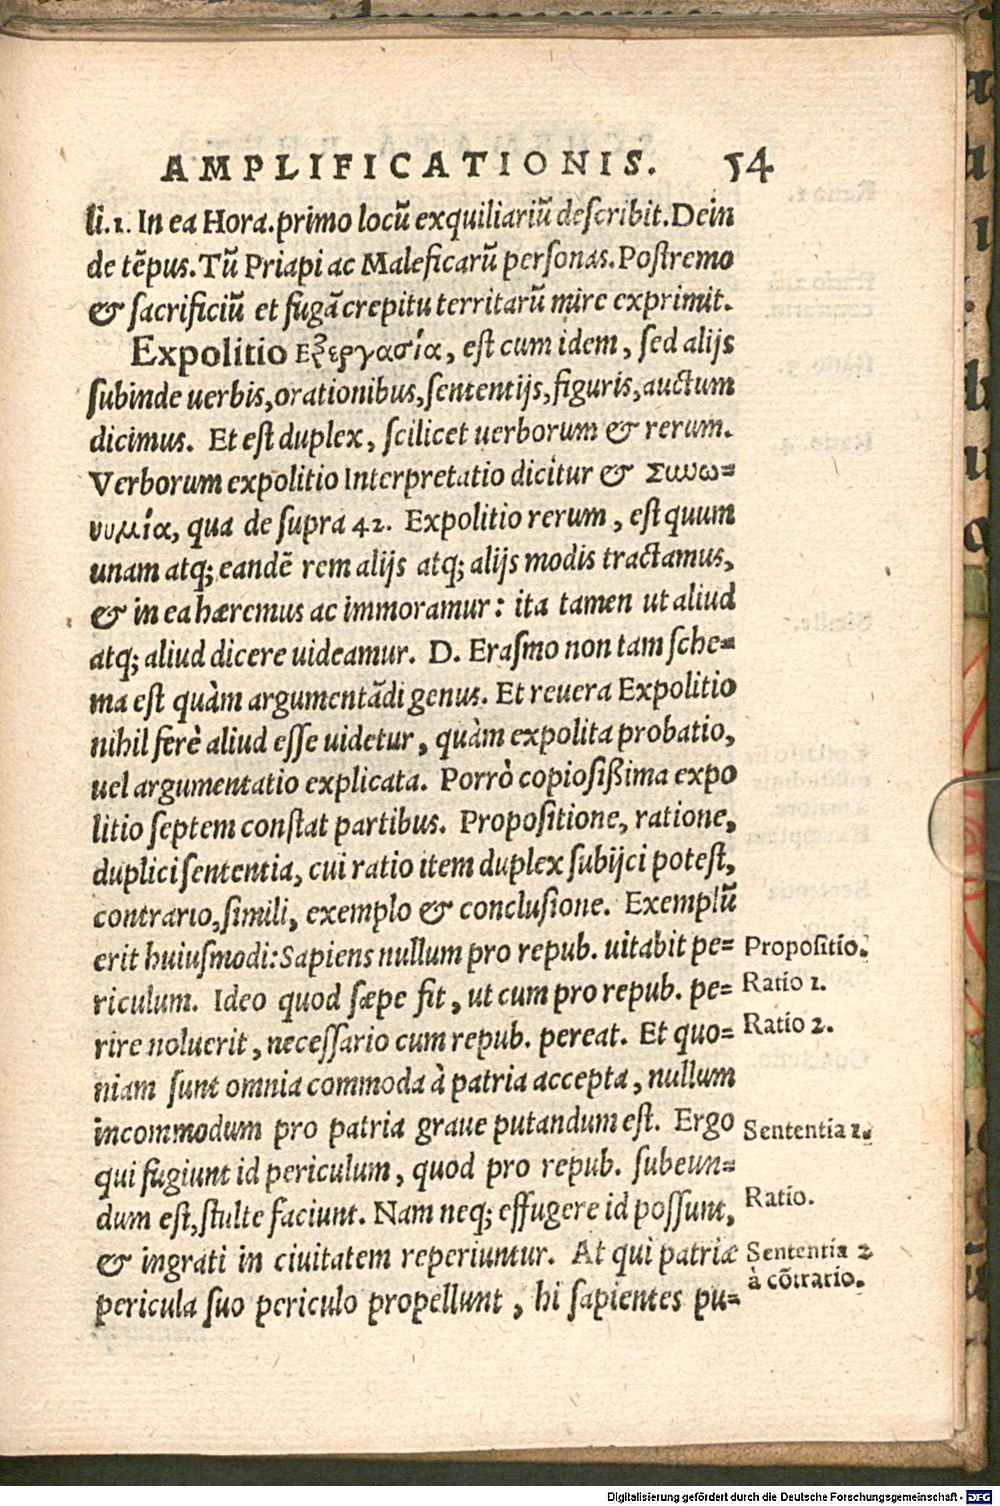 AMPLIFICATIONIS. 54
li.1. In ea Hora.primo locũ exquiliariũ describit.Dein
de tẽpus.Tũ Priapi ac Maleficarũ personas.Postremo
& sacrificiũ et fugã crepitu territarũ mire exprimit.
Expolitio Εξεργασία, est cum idem, sed alijs
subinde uerbis,orationibus,sententijs,figuris,auctum
dicimus. Et est duplex, scilicet uerborum & rerum.
Verborum expolitio Interpretatio dicitur & Συνω=
νυμία, qua de supra 42. Expolitio rerum, est quum
unam atq; eandẽ rem alijs atq; alijs modis tractamus,
& in ea hæremus ac immoramur: ita tamen ut aliud
atq; aliud dicere uideamur. D. Erasmo non tam sche=
ma est quàm argumentãdi genus. Et reuera Expolitio
nihil ferè aliud esse uidetur, quàm expolita probatio,
uel argumentatio explicata. Porrò copiosißima expo
litio septem constat partibus. Propositione, ratione,
duplici sententia, cui ratio item duplex subijci potest,
contrario,simili, exemplo & conclusione. Exemplũ
erit huiusmodi:Sapiens nullum pro repub. uitabit pe= Propositio.
riculum. Ideo quod sæpe fit, ut cum pro repub. pe= Ratio 1.
rire noluerit, necessario cum repub. pereat. Et quo= Ratio 2.
niam sunt omnia commoda à patria accepta, nullum
incommodum pro patria graue putandum est. Ergo Sententia 1.
qui fugiunt id periculum, quod pro repub. subeun=
dum est,stulte faciunt. Nam neq; effugere id possunt, Ratio.
& ingrati in ciuitatem reperiuntur. At qui patriæ Sententia 2
pericula suo periculo propellunt, hi sapientes pu= à cõtrario.
Digitalisierung gefördert durch die Deutsche Forschungsgemeinschaft - DFG